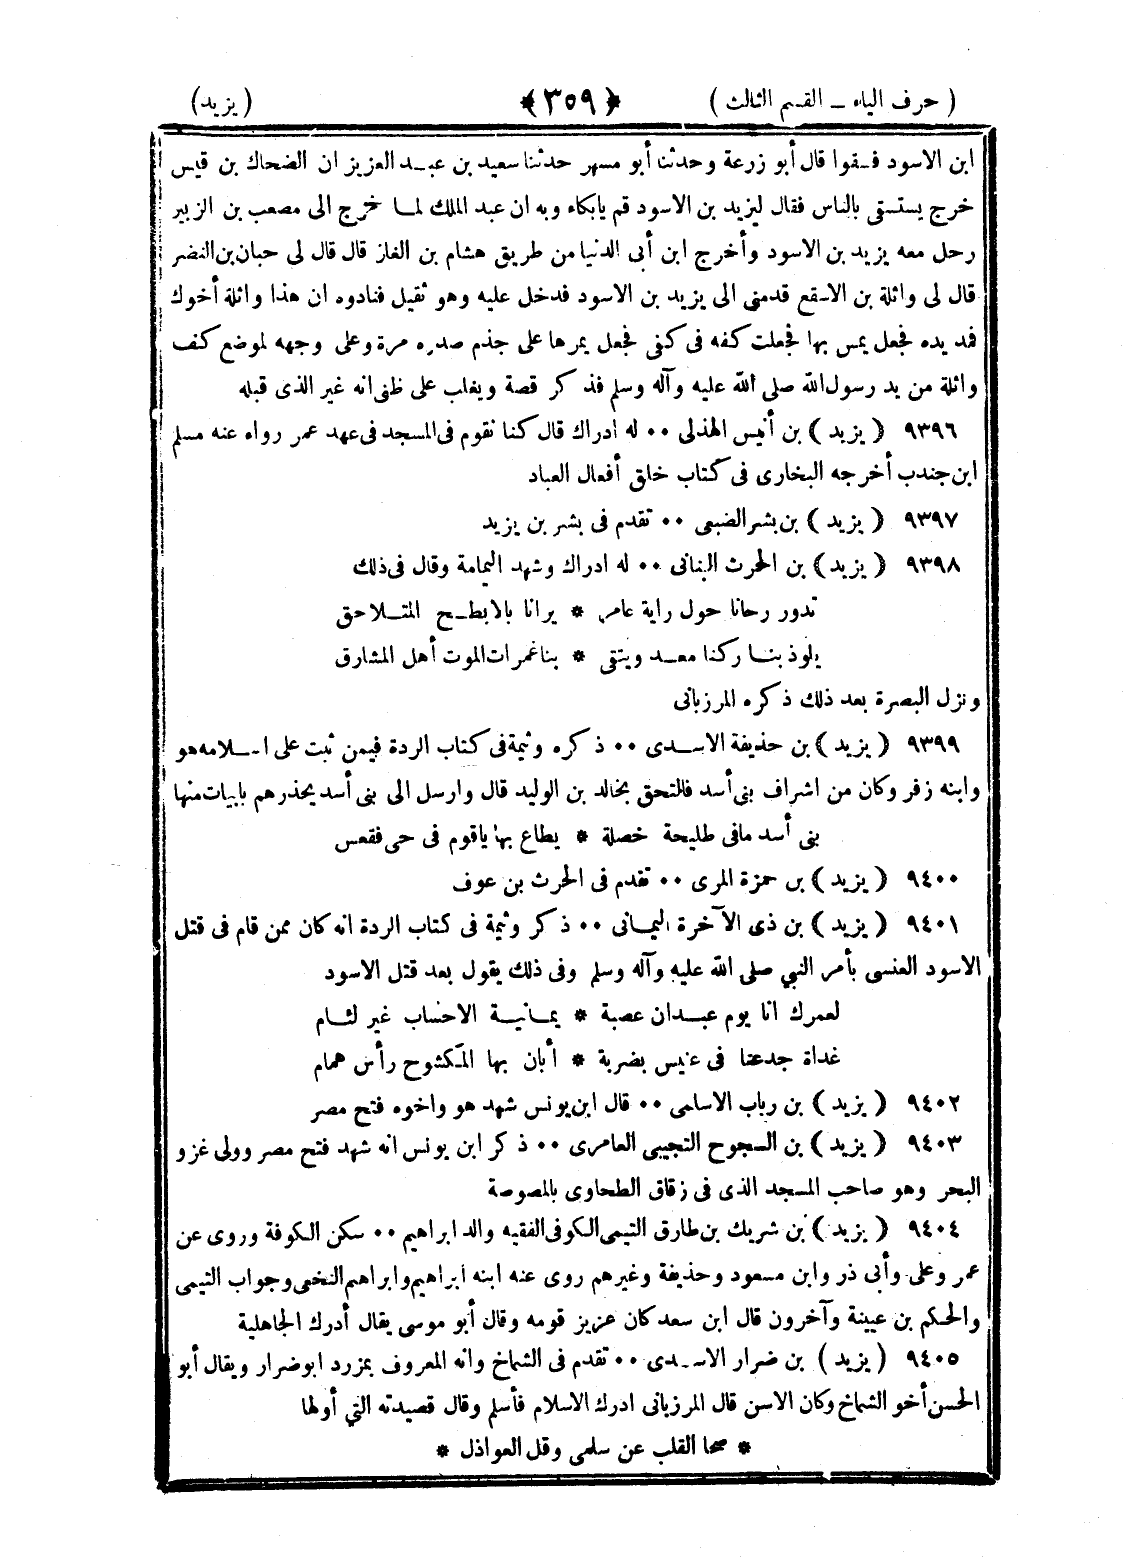 ( حرف الياء ــ القسم الثالث ) ﴿ ٣٥٩ ﴾ ( يزيد)
ابن الاسود فسقوا قال أبو زرعة وحدثنا أبو مسهر حدثنا سعيد بن عبد العزيز ان الضحاك بن قيس
خرج يستسقى بالناس فقال ليزيد بن الاسود قم يابكاء وبه ان عبد الملك لما خرج الى مصعب بن الزبير
رحل معه يزيد بن الاسود وأخرج ابن أبى الدنيا من طريق هشام بن الغاز قال قال لى حبان بن النضر
قال لى واثلة بن الاسقع قدمنى الى يزيد بن الاسود فدخل عليه وهو ثقيل فنادوه ان هذا واثلة أخوك
فمد يده فجعل يمس بها فجعلت كفه فى كفى فجعل يمرها على جذم صدره مرة وعلى وجهه لموضع كف
واثلة من يد رسول الله صلى الله عليه وآله وسلم فذكر قصة ويغلب على ظنى انه غير الذى قبله
٩٣٩٦ ( يزيد ) بن أنيس الهذلى ٠٠ له ادراك قال كنا نقوم فى المسجد فى عهد عمر رواه عنه مسلم
ابن جندب أخرجه البخارى فى كتاب خلق أفعال العباد
٩٣٩٧ ( يزيد ) بن بشر الضبعى ٠٠ تقدم فى بشر بن يزيد
٩٣٩٨ ( يزيد ) بن الحرث البنانى ٠٠ له ادراك وشهد اليمامة وقال فى ذلك
تدور رحانا حول راية عامر * يرانا بالابطح المتلاحق
يلوذ بنا ركنا معد ويتقى * بنا غمرات الموت أهل المشارق
ونزل البصرة بعد ذلك ذكره المرزبانى
٩٣٩٩ ( يزيد ) بن حذيفة الاسدى ٠٠ ذكره وثيمة فى كتاب الردة فيمن ثبت على اسلامه هو
وابنه زفر وكان من اشراف بنى أسد فالتحق بخالد بن الوليد قال وارسل الى بنى أسد يحذرهم بابيات منها
بنى أسد مافى طليحة خصلة * يطاع بها ياقوم فى حى فقعس
٩٤٠٠ ( يزيد ) بن حمزة المرى ٠٠ تقدم فى الحرث بن عوف
٩٤٠١ ( يزيد ) بن ذى الآخرة اليمانى ٠٠ ذكر وثيمة فى كتاب الردة انه كان ممن قام فى قتل
الاسود العنسى بأمر النبي صلى الله عليه وآله وسلم وفى ذلك يقول بعد قتل الاسود
لعمرك انا يوم عبدان عصبة * يمانية الاحساب غير لئام
غداة جدعنا فى عنيس بضربة * أبان بها المكشوح رأس همام
٩٤٠٢ ( يزيد ) بن رباب الاسلمى ٠٠ قال ابن يونس شهد هو واخوه فتح مصر
٩٤٠٣ ( يزيد ) بن السجوح التجيبى العامرى ٠٠ ذكر ابن يونس انه شهد فتح مصر وولى غزو
البحر وهو صاحب المسجد الذى فى زقاق الطحاوى بالمصوصة
٩٤٠٤ ( يزيد ) بن شريك بن طارق التيمى الكوفى الفقيه والد ابراهيم ٠٠ سكن الكوفة وروى عن
عمر وعلى وأبى ذر وابن مسعود وحذيفة وغيرهم روى عنه ابنه ابراهيم وابراهيم النخعى وجواب التيمى
والحكم بن عيينة وآخرون قال ابن سعد كان عزيز قومه وقال أبو موسى يقال أدرك الجاهلية
٩٤٠٥ ( يزيد ) بن ضرار الاسدى ٠٠ تقدم فى الشماخ وانه المعروف بمزرد ابو ضرار ويقال أبو
الحسن أخو الشماخ وكان الاسن قال المرزبانى ادرك الاسلام فأسلم وقال قصيدته التي أولها
* صحا القلب عن سلمى وقل العواذل *